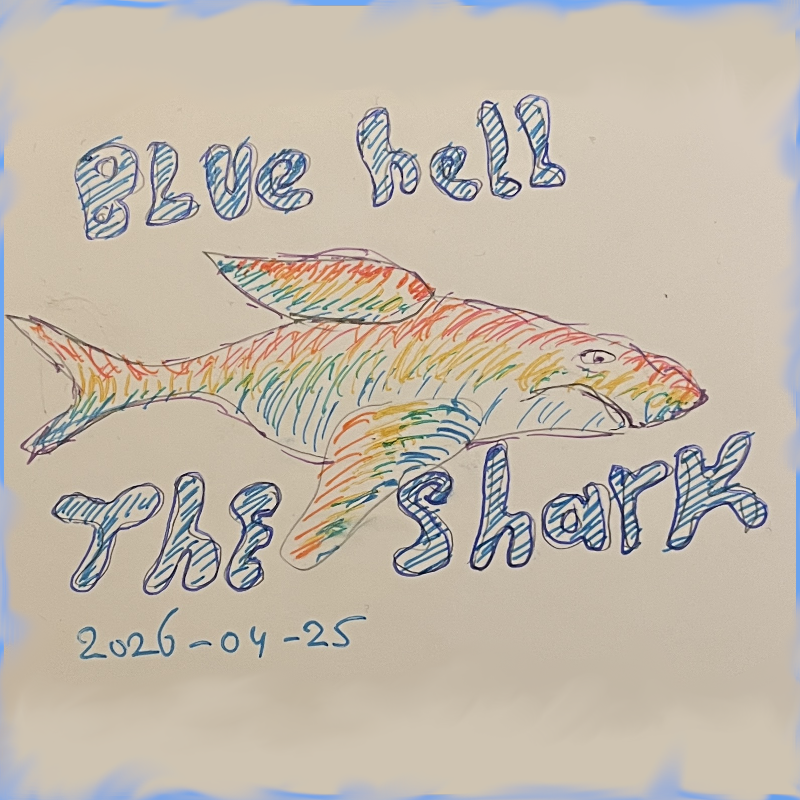 BLUe hell
The Shark
2026-04-25